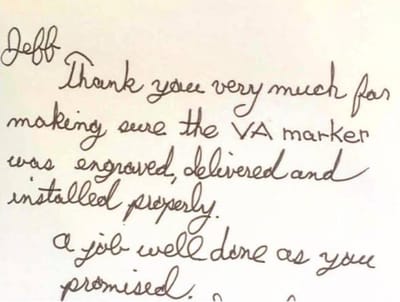 Jeff
Thank you very much for
making sure the VA marker
was engraved, delivered and
installed properly.
a job well done as you
promised.